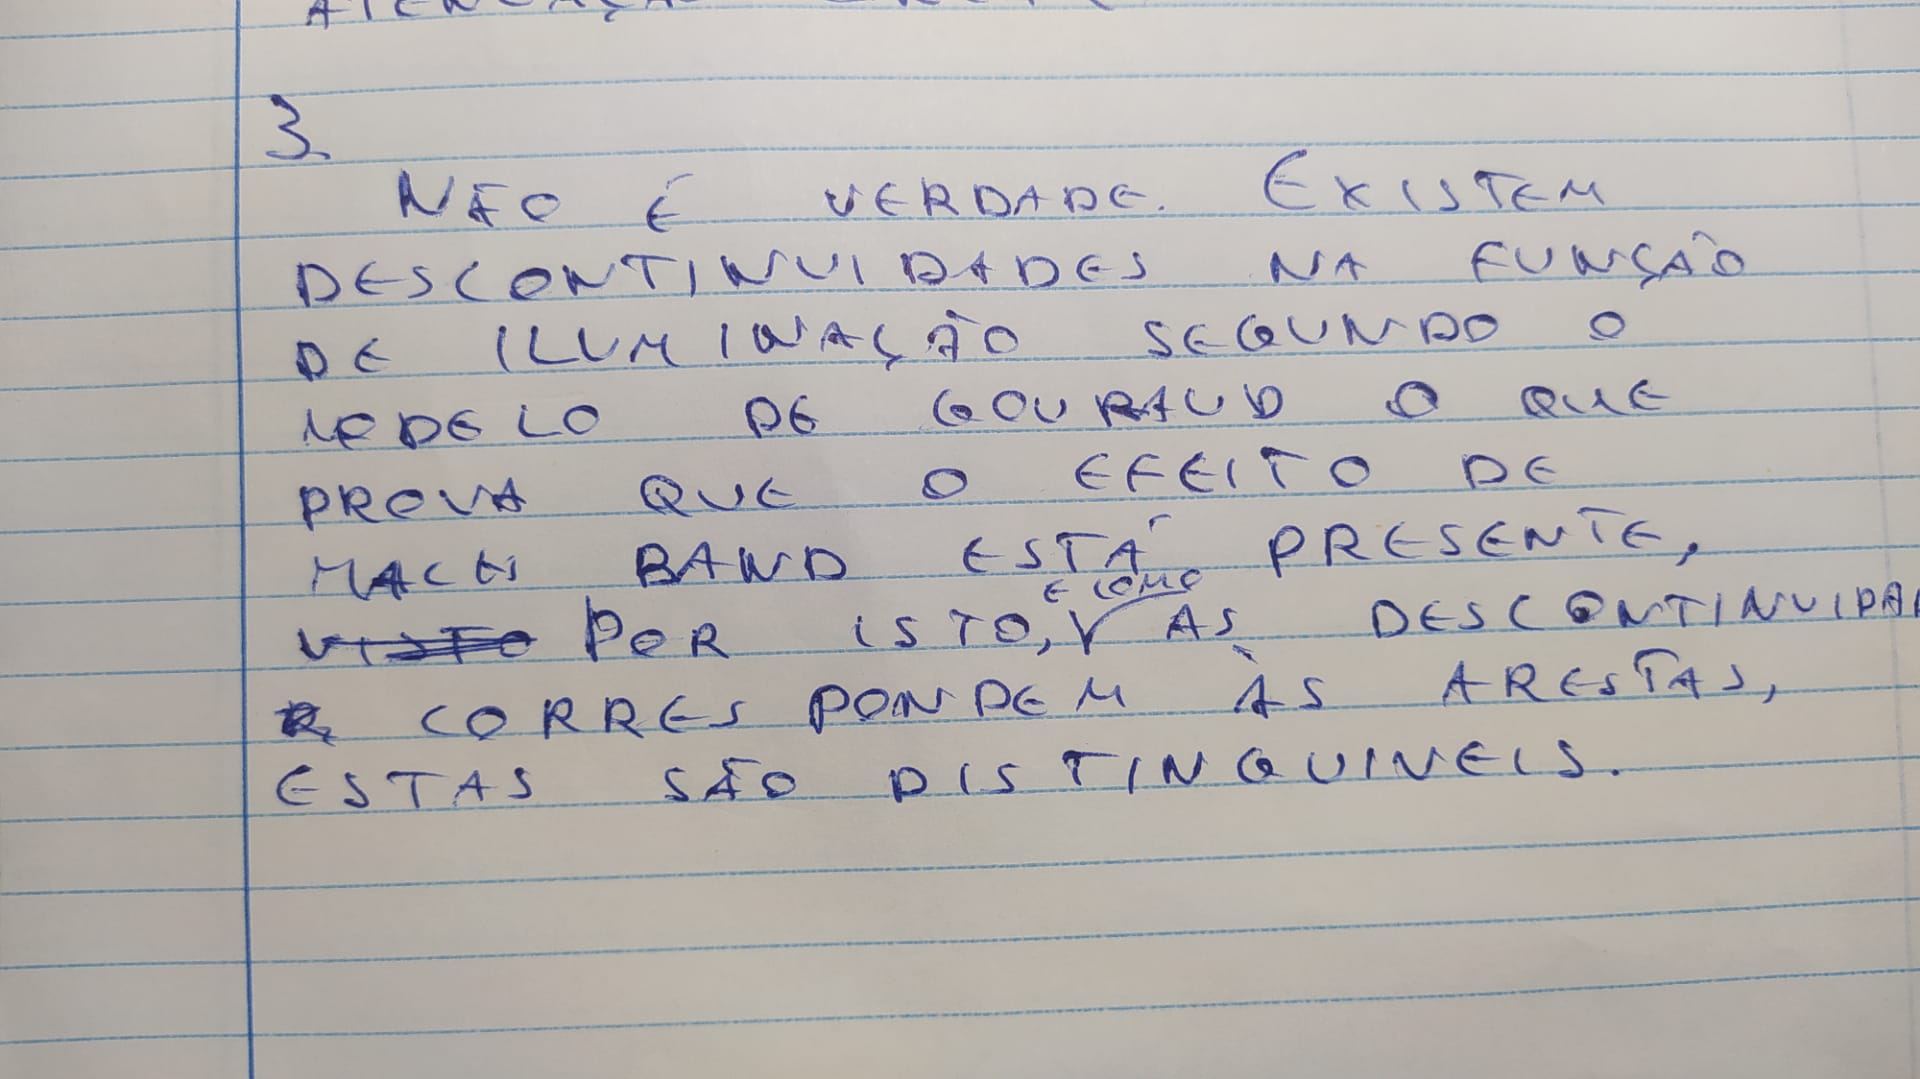 3.
NÃO É VERDADE. EXISTEM
DESCONTINUIDADES NA FUNÇÃO
DE ILUMINAÇÃO SEGUNDO O
MODELO DE GOURAUD O QUE
PROVA QUE O EFEITO DE
MACH BAND ESTÁ PRESENTE,
POR ISTO, E COMO AS DESCONTINUIDA
CORRESPONDEM ÀS ARESTAS,
ESTAS SÃO DISTINGUIVEIS.